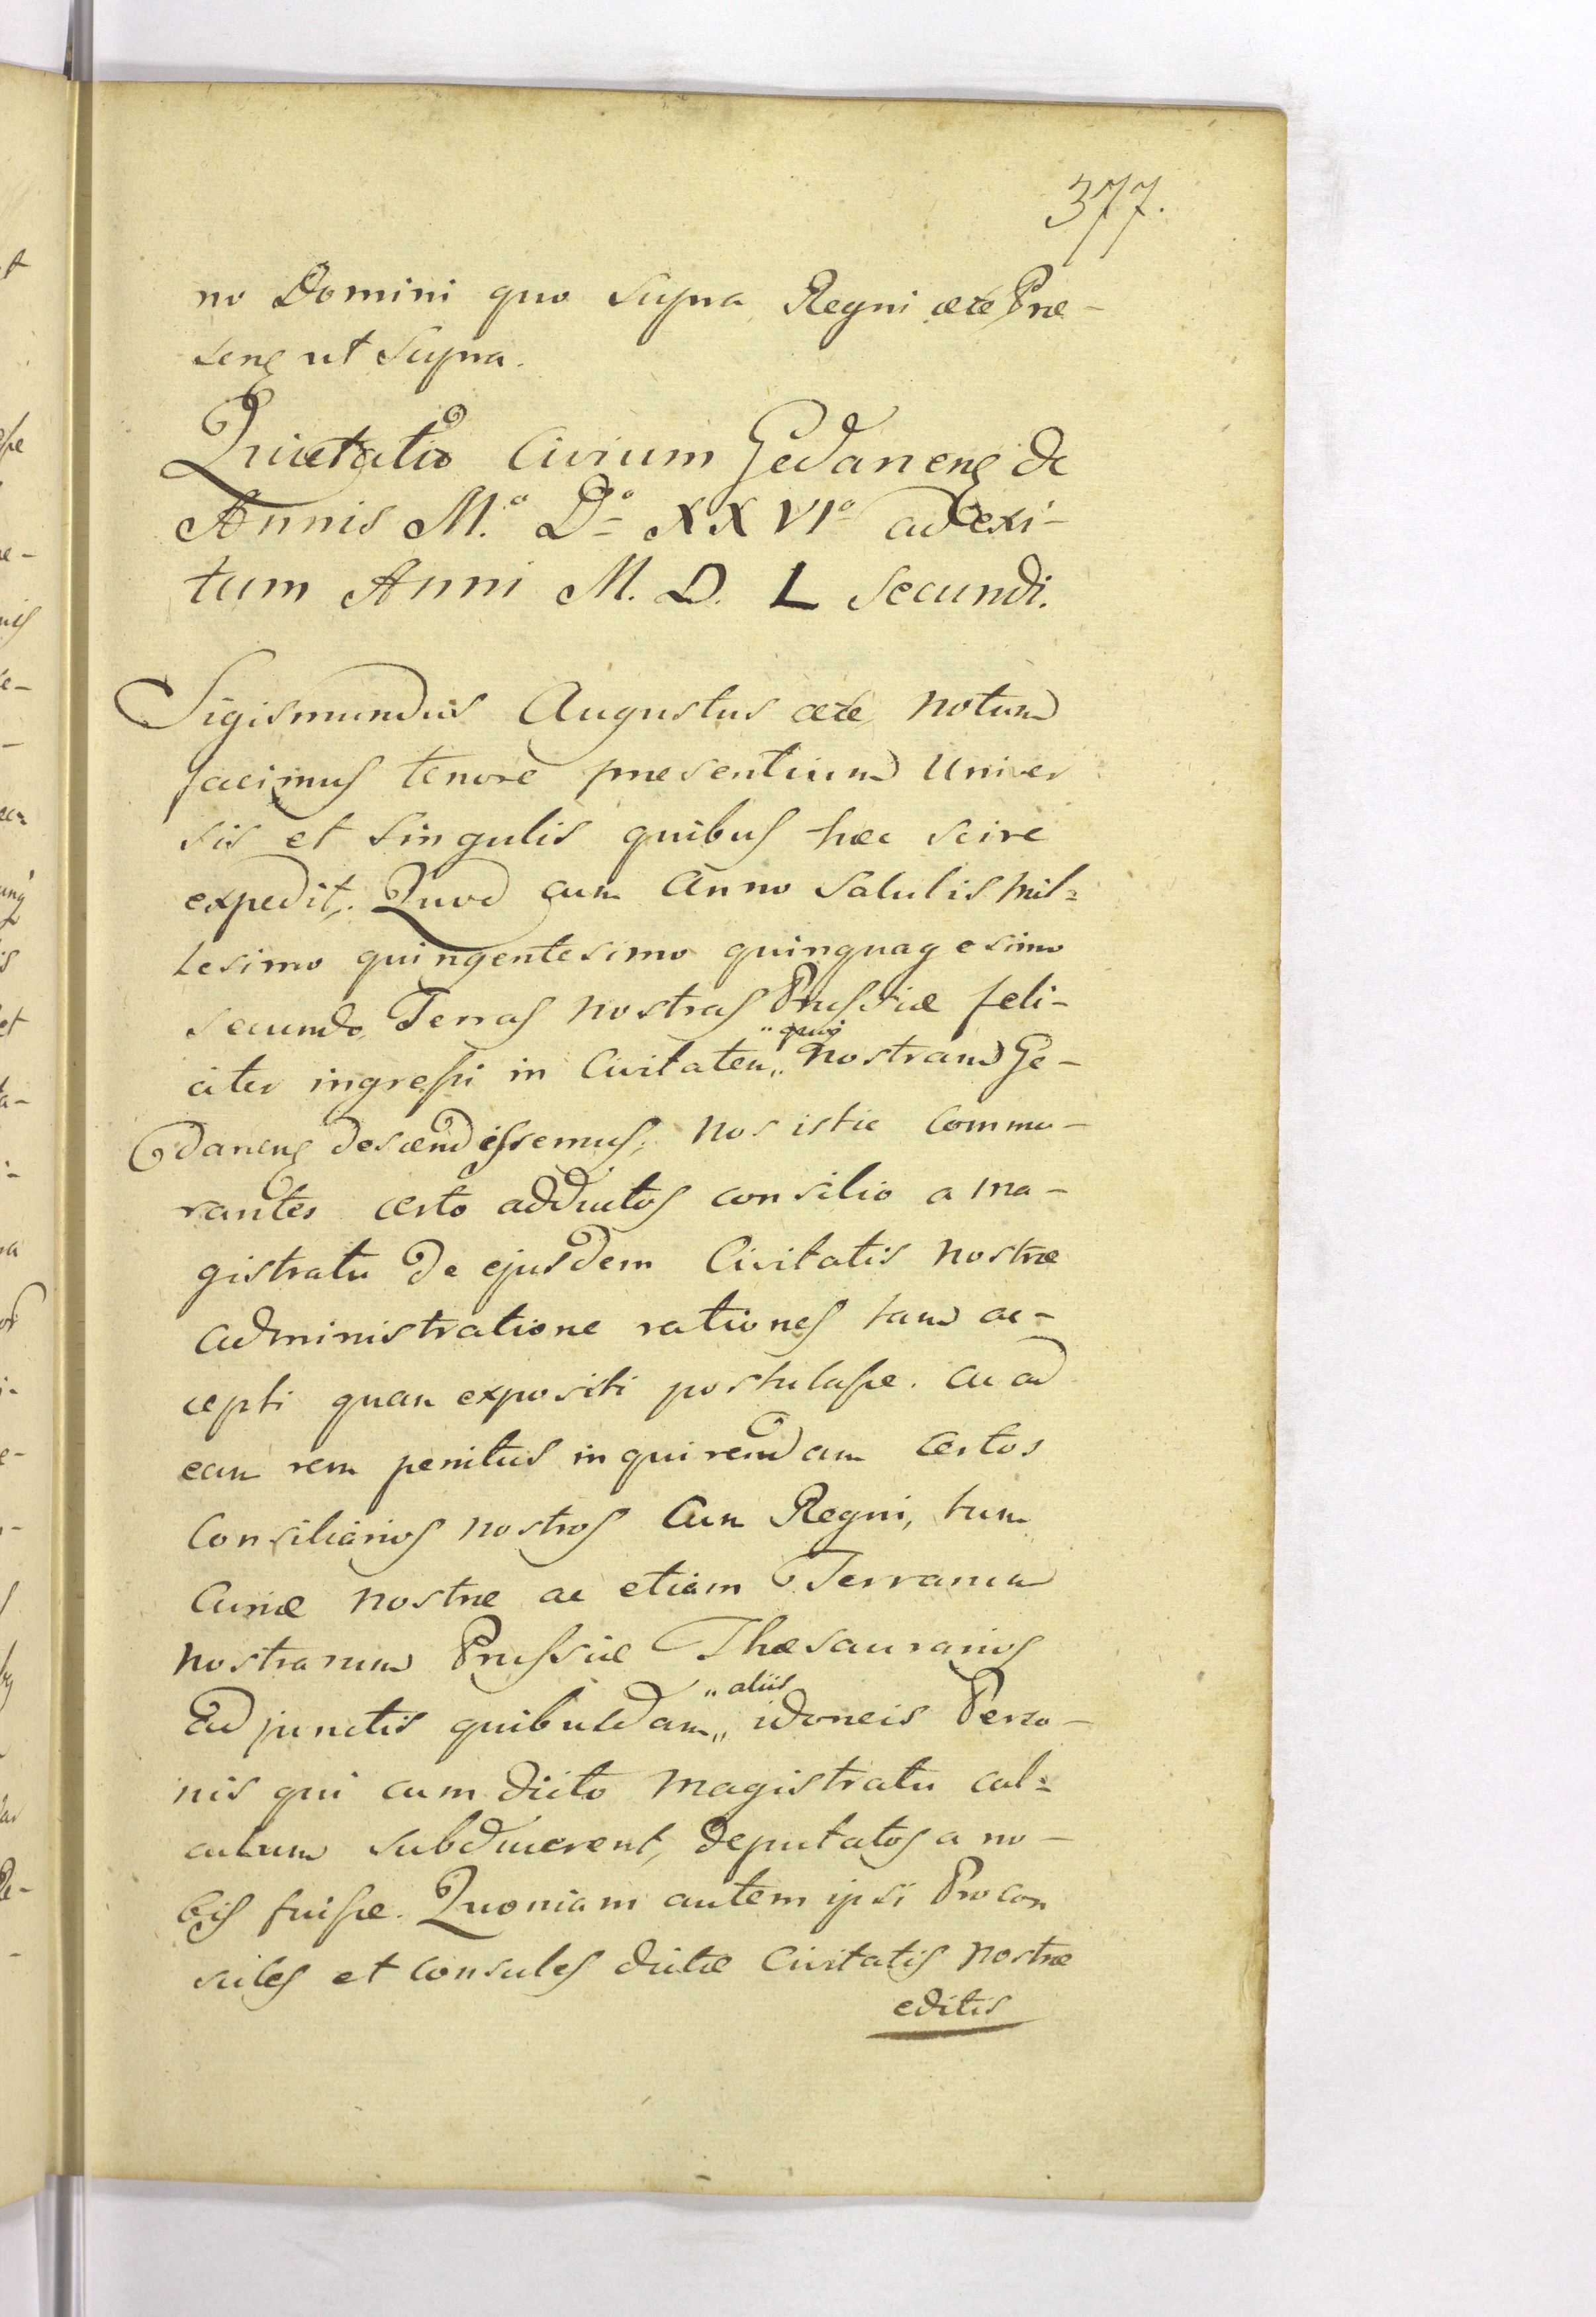 377.
no Domini quo supra Regni etc Præ-
senꝭ ut supra.
Quietatio Civium Gedanenꝭ de
Annis M.º D.º XXVIº ad exi-
tum Anni M. D. L secundi.
Sigismundus Augustus etc notum
facimus tenore præsentium Univer
sis et singulis quibus hæc scire
expedit. Quod cum Anno salutis mil=
lesimo quingentesimo quinquagesimo
secundo Terras nostras Prussiæ feli-
„quoq
citer ingressi in Civitatem„ nostram Ge-
danenꝭ descendissemus, nos istic commo-
rantes certo adductos consilio a ma-
gistratu de ejusdem Civitatis nostræ
administratione rationes tam ac-
cepti quam expositi postulasse. ac ad
eam rem penitus inquirendam certos
Consiliarios nostros cum Regni, tum
Curiæ nostræ ac etiam Terrarum
nostrarum Prussiæ Thesaurarios
„aliis
Adjunctis quibusdam„ idoneis Perso-
nis qui cum dicto Magistratu cal=
culum subducerent, deputatos a no-
bis fuisse. Quoniam autem ipsi Procon
sules et Consules dictæ Civitatis nostræ
editis